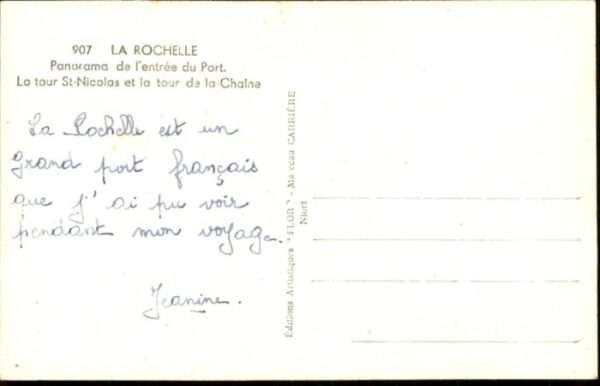 907 LA ROCHELLE
Panorama de l'entrée du Port.
La tour St-Nicolas et la tour de la Chaîne
La Rochelle est un
grand port français
que j'ai pu voir
pendant mon voyage.
Jeanine.
Éditions Artistiques "FLOR" - Marceau CARRIÈRE
Niort